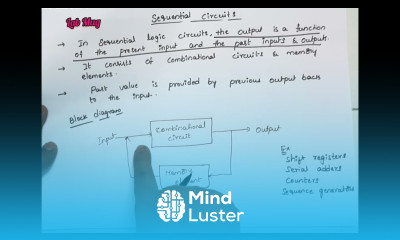 Sequential Circuits
→ In Sequential Logic circuits, the output is a function
of the present input and the past inputs & outputs.
→ It consists of combinational circuits & memory
elements.
→ Past value is provided by previous output back
to the input.
Block diagram
Input
Combinational
circuit
Output
Ex
Shift registers
Serial adders
Counters
Sequence generators
Mind
Luster